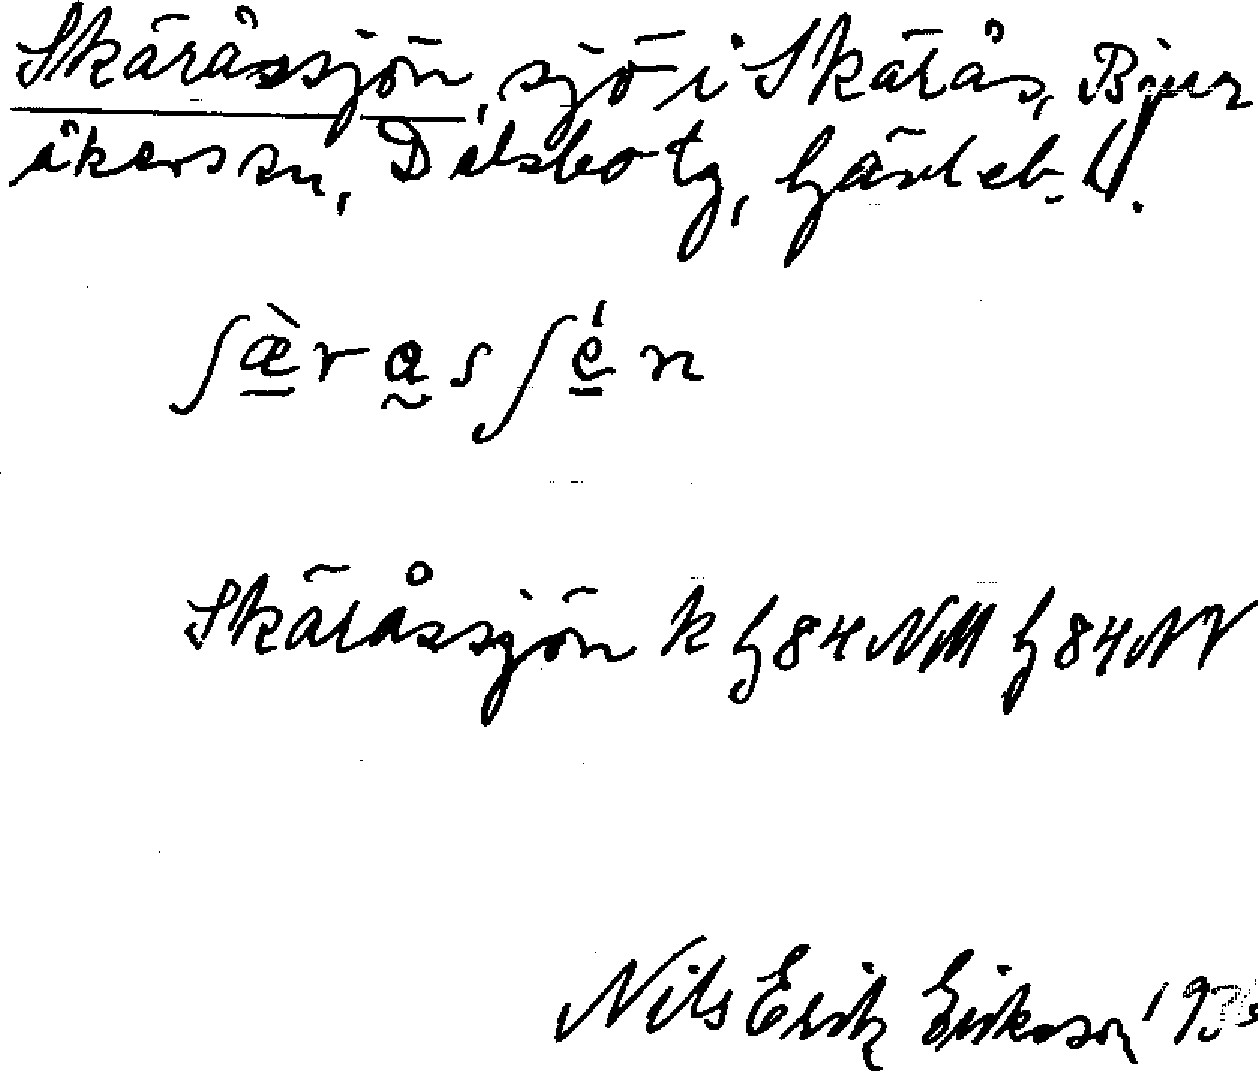 Skäråssjön, sjö i Skärås, Bjur
åkers sn, Delsbo tg, Gävleb. l.
ʃæ̀rasʃén
Skäråssjön k G84NM G84NV
Nils Erik Eriksson